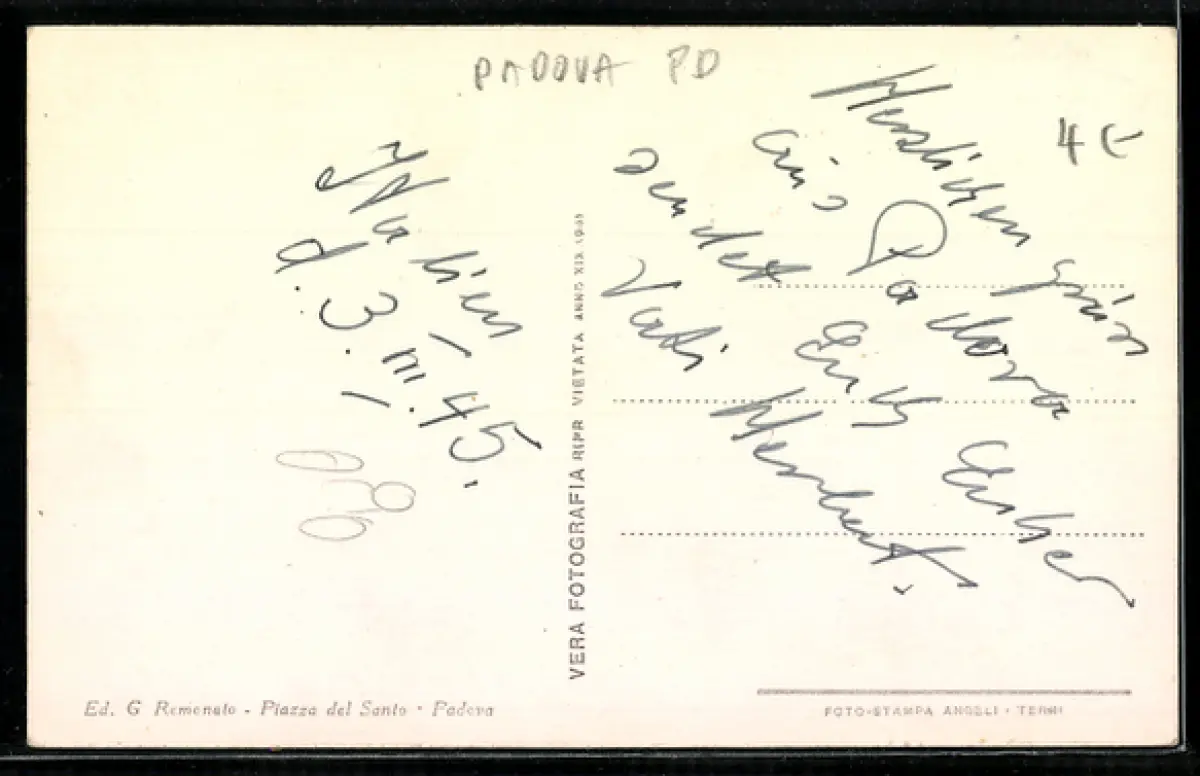 PADOVA PD
4 €
Italien
d. 3. III. 45.
Herzlichen
aus Padova
sendet Euch Euer
Vati Herbert.
VERA FOTOGRAFIA REPR VIETATA ANNO XIX
Ed. G Remonato - Piazza del Santo - Padova
FOTO-STAMPA ANGELI - TERNI